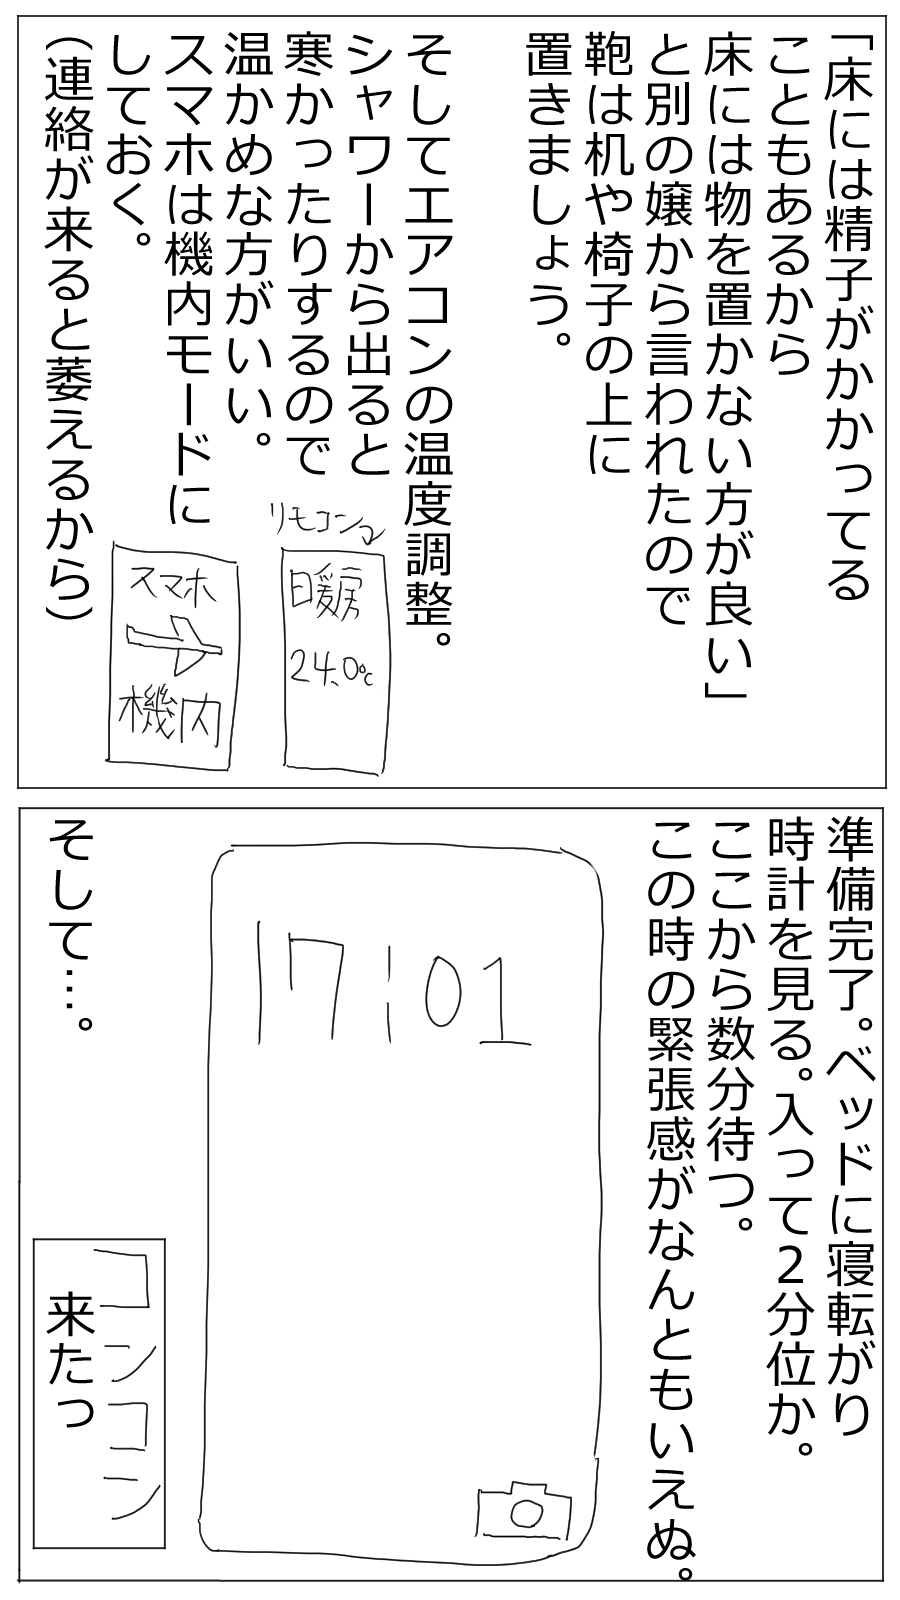 「床には精子がかかってる
こともあるから
床には物を置かない方が良い」
と別の嬢から言われたので
鞄は机や椅子の上に
置きましょう。
そしてエアコンの温度調整。
シャワーから出ると
寒かったりするので
温かめな方がいい。
スマホは機内モードに
しておく。
（連絡が来ると萎えるから）
リモコン
暖房
24.0℃
スマホ
機内
準備完了。ベッドに寝転がり
時計を見る。入って2分位か。
ここから数分待つ。
この時の緊張感がなんともいえぬ。
17:01
そして…。
コンコン
来たっ